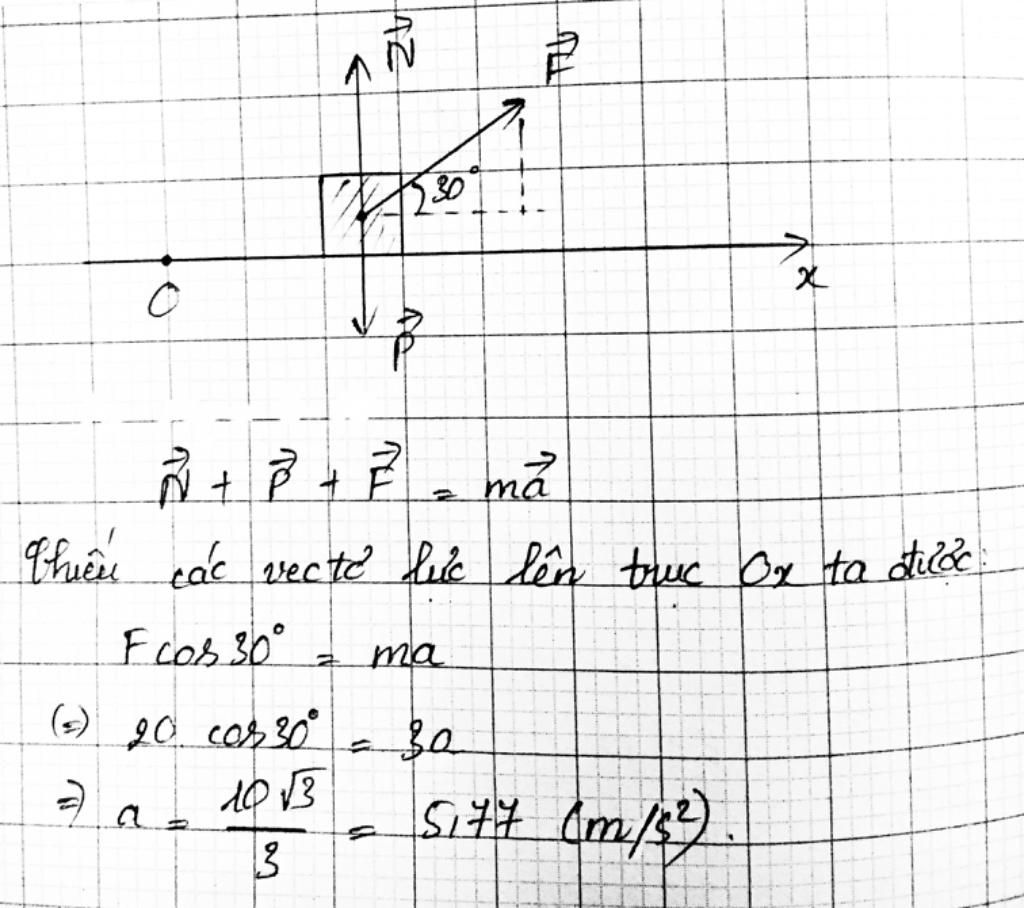 N⃗
F⃗
30°
O
x
P⃗
N⃗ + P⃗ + F⃗ = ma⃗
Chiếu các vectơ lực lên trục Ox ta được:
F cos30° = ma
(=) 20. cos30° = 3a
=) a = 10√3/3 = 5,77 (m/s²).